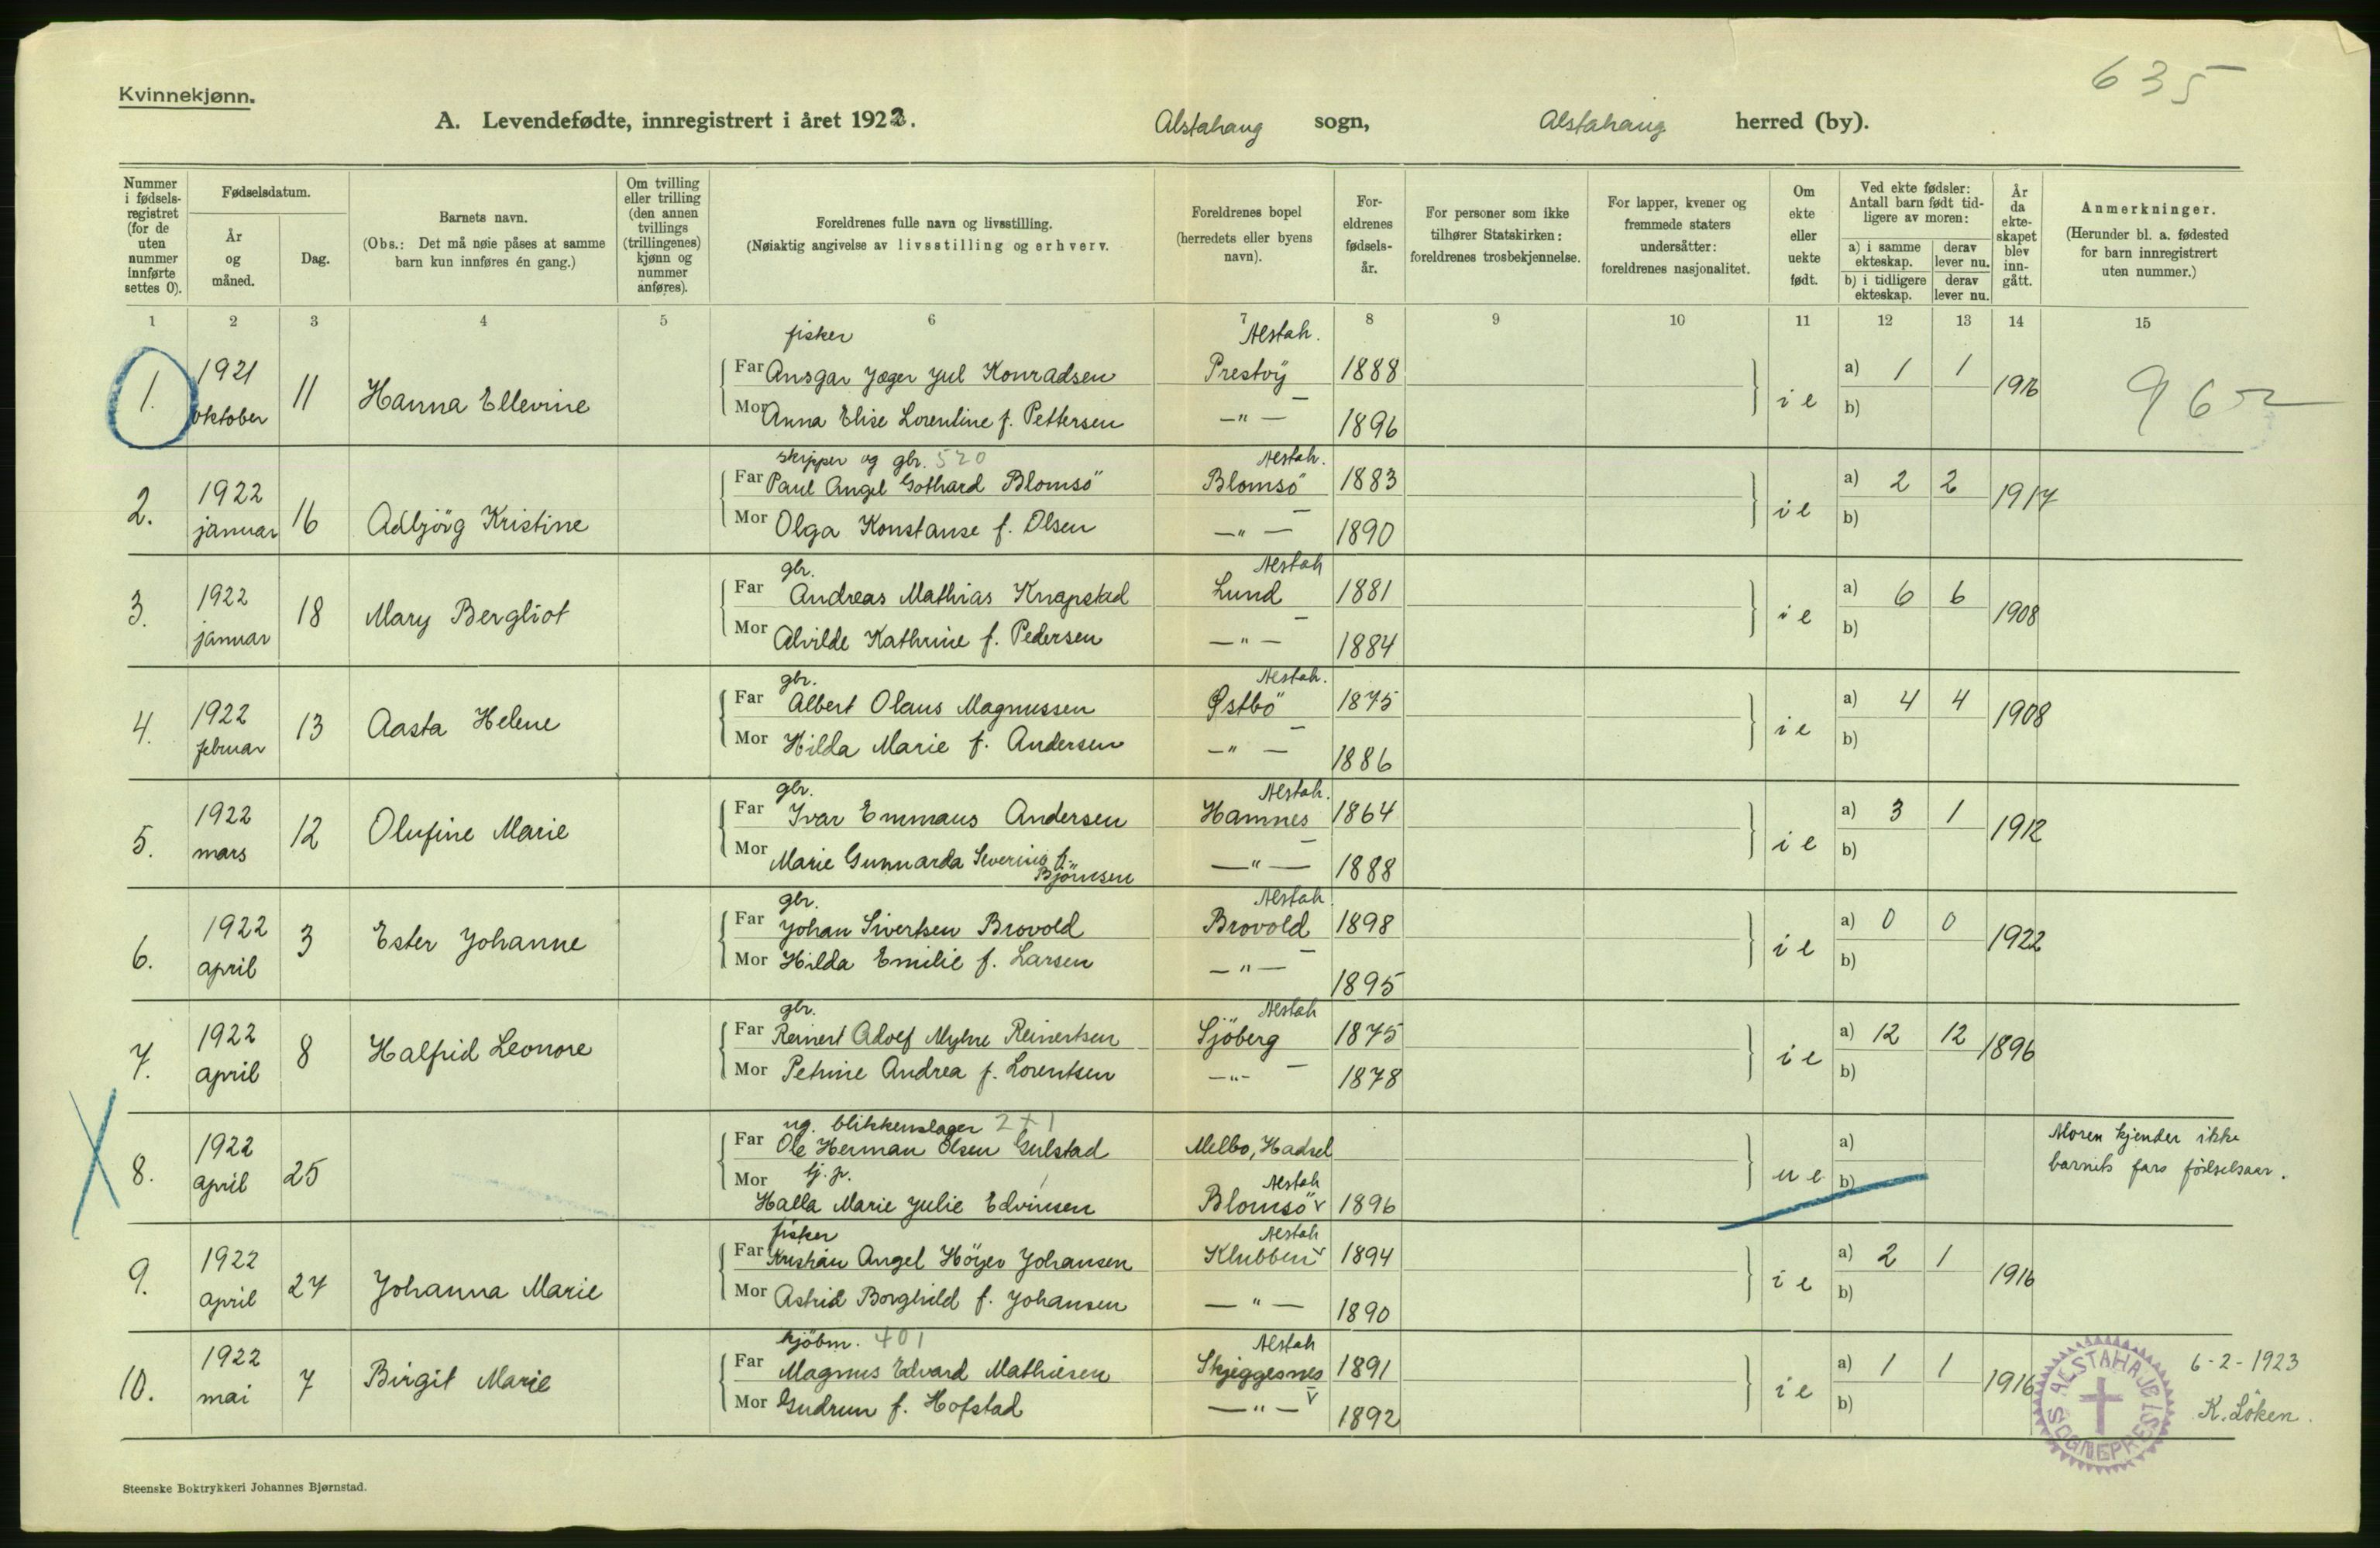 635
Kvinnekjønn.
A. Levendefødte, innregistrert i året 1922. Alstahaug sogn, Alstahaug herred (by).
Nummer i fødsels-registret (for de uten nummer innførte settes 0).
Fødselsdatum.
År og måned.
Dag.
Barnets navn.
(Obs.: Det må nøie påses at samme barn kun innføres én gang.)
Om tvilling eller trilling (den annen tvillings (trillingenes) kjønn og nummer anføres).
Foreldrenes fulle navn og livsstilling.
(Nøiaktig angivelse av livsstilling og erhverv.
Foreldrenes bopel (herredets eller byens navn).
For-eldrenes fødsels-år.
For personer som ikke tilhører Statskirken: foreldrenes trosbekjennelse.
For lapper, kvener og fremmede staters undersåtter: foreldrenes nasjonalitet.
Om ekte eller uekte født.
Ved ekte fødsler: Antall barn født tid-ligere av moren:
a) i samme ekteskap. derav lever nu.
b) i tidligere ekteskap. derav lever nu.
År da ekte-skapet blev inn-gått.
Anmerkninger.
(Herunder bl. a. fødested for barn innregistrert uten nummer.)
1 2 3 4 5 6 7 8 9 10 11 12 13 14 15
fisker Alstah.
1. 1921 oktober 11 Hanna Ellevine Far Ansgar Jæger Jul Konradsen Prestöy 1888 i e a) 1 1 1916 962
Mor Anna Elise Lorentine f. Pettersen —"— 1896 b)
skipper og gbr. 520 Alstah.
2. 1922 januar 16 Adbjörg Kristine Far Paul Angel Gothard Blomsö Blomsö 1883 i e a) 2 2 1917
Mor Olga Konstanse f. Olsen —"— 1890 b)
gbr. Alstah
3. 1922 januar 18 Mary Bergliot Far Andreas Mathias Knapstad Lund 1881 i e a) 6 6 1908
Mor Alvilde Kathrine f. Pedersen —"— 1884 b)
gbr. Alstah.
4. 1922 februar 13 Aasta Helene Far Albert Olaus Magnussen Østbö 1875 i e a) 4 4 1908
Mor Hilda Marie f. Andersen —"— 1886 b)
gbr. Alstah.
5. 1922 mars 12 Olufine Marie Far Ivar Emmaus Andersen Hamnes 1864 i e a) 3 1 1912
Mor Marie Gunnarda Severine f. Björnsen —"— 1888 b)
gbr. Alstah.
6. 1922 april 3 Ester Johanne Far Johan Sivertsen Brovold Brovold 1898 i e a) 0 0 1922
Mor Hilda Emilie f. Larsen —"— 1895 b)
gbr. Alstah
7. 1922 april 8 Halfrid Leonore Far Reinert Adolf Myhre Reinertsen Sjöberg 1875 i e a) 12 12 1896
Mor Petrine Andrea f. Lorentsen —"— 1878 b)
ug. blikkenslager 2+1
8. 1922 april 25 Far Ole Herman Olsen Gulstad Melbo, Hadsel u e a) Moren kjender ikke barnets fars födselsaar.
Mor tj. p. Alstah
Halla Marie Julie Edvinsen Blomsö v 1896 b)
fisker Alstah
9. 1922 april 27 Johanna Marie Far Kristian Angel Höyer Johansen Klubben v 1894 i e a) 2 1 1916
Mor Astrid Borghild f. Johansen —"— 1890 b)
kjöbm. 401 Alstah
10. 1922 mai 7 Birgit Marie Far Magnus Edvard Mathiesen Skjeggesnes 1891 i e a) 1 1 1916 6-2-1923
Mor Gudrun f. Hofstad —"— v 1892 b) K. Löken.
ALSTAHAUG SOGNEPREST
Steenske Boktrykkeri Johannes Bjørnstad.